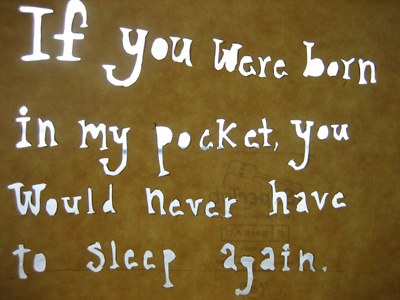 If you were born
in my pocket, you
Would never have
to sleep again.